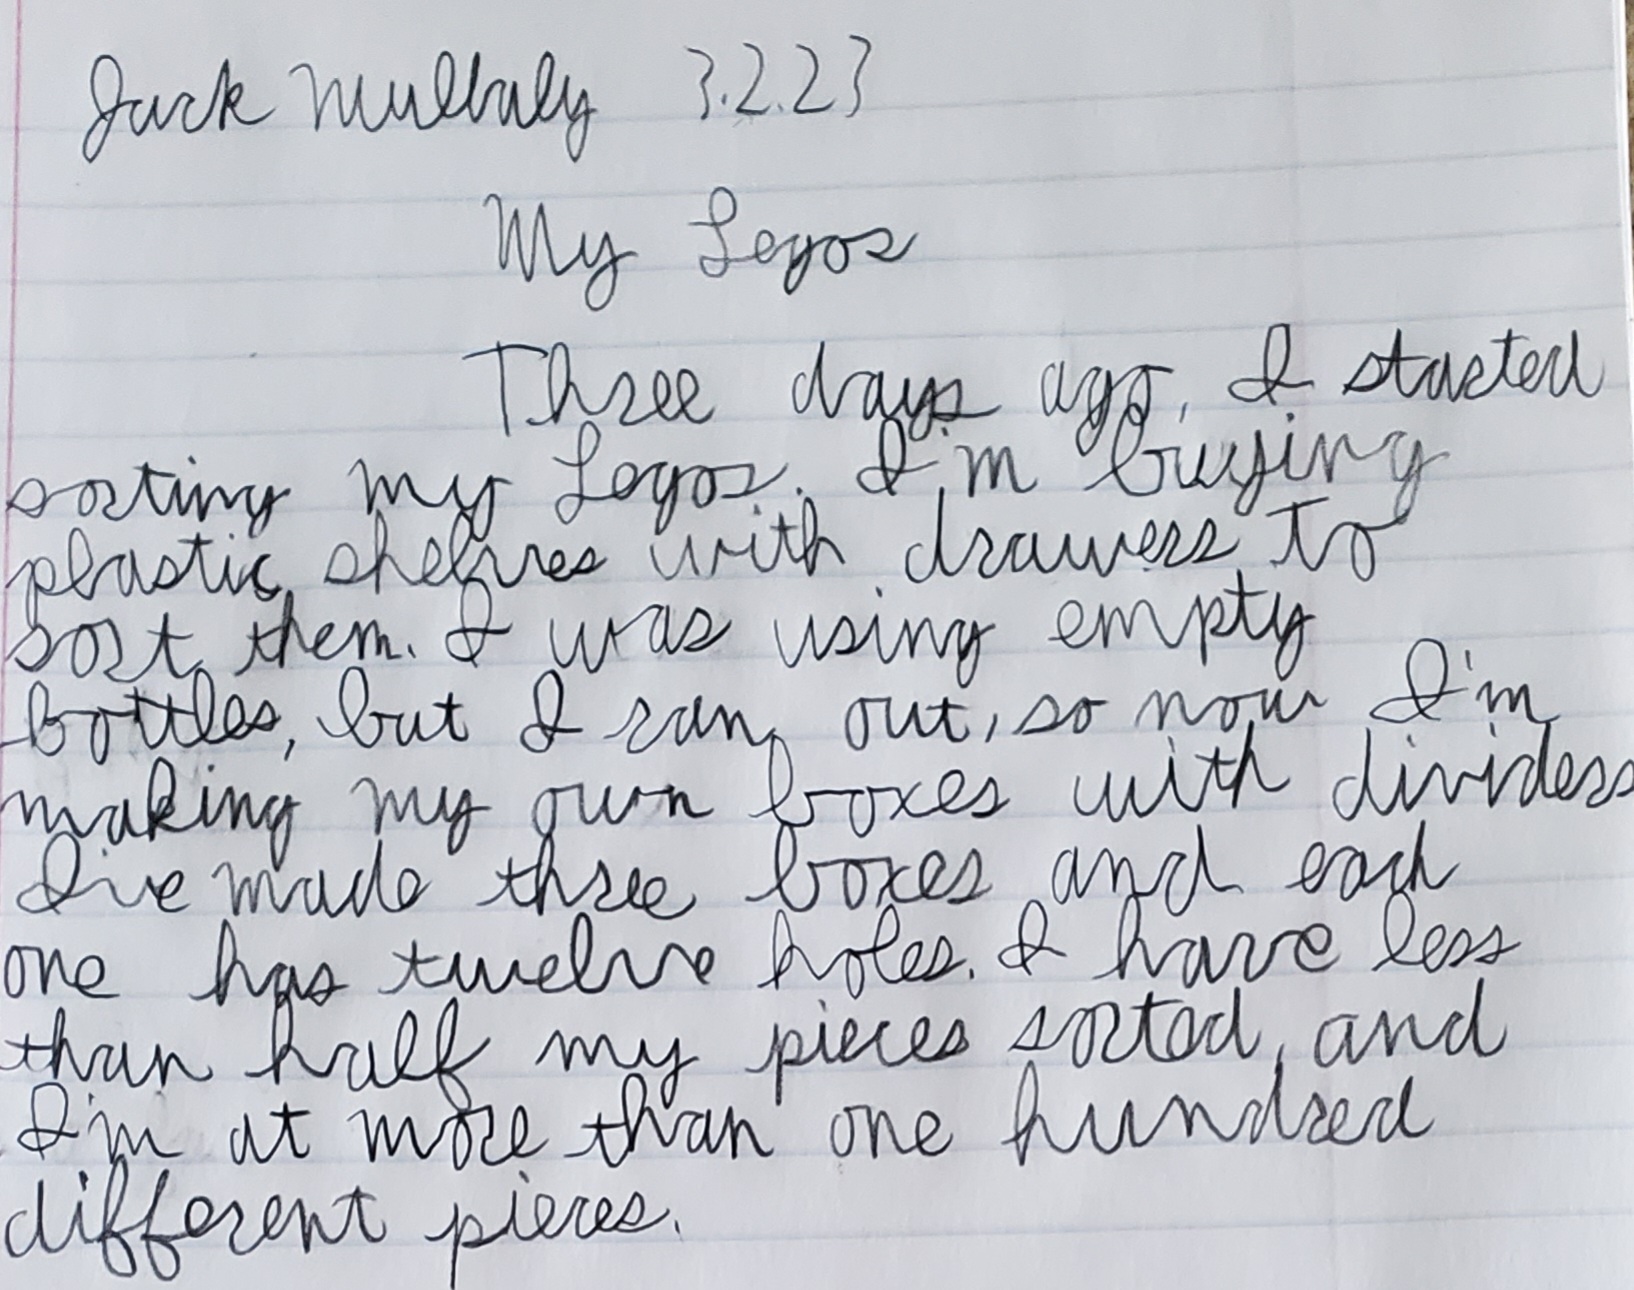 Jack Mullaly 3.2.23
My Legos
Three days ago, I started
sorting my Legos. I'm buying
plastic shelves with drawers to
sort them. I was using empty
bottles, but I ran out, so now I'm
making my own boxes with dividers
I've made three boxes and each
one has twelve holes. I have less
than half my pieces sorted, and
I'm at more than one hundred
different pieces.